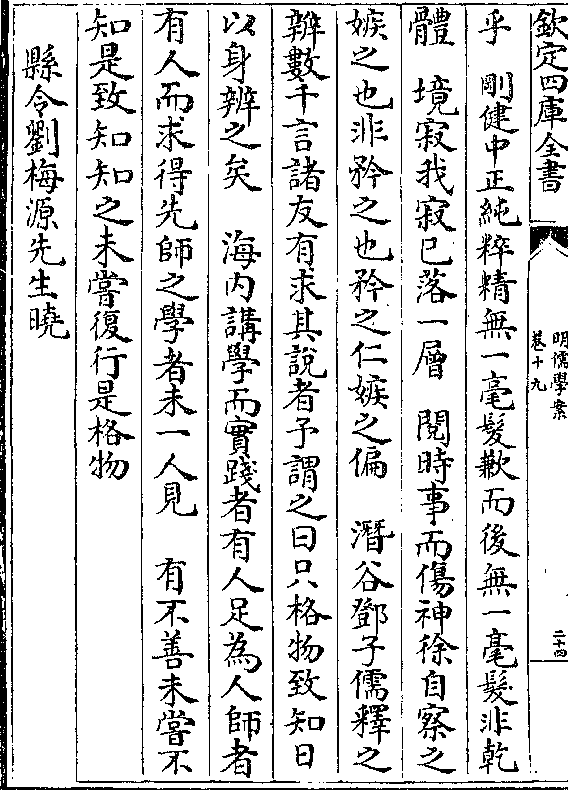 欽定四庫全書
明儒學案
卷十九
二十四
乎　剛健中正純粹精無一毫髮歉而後無一毫髮非乾
體　境寂我寂已落一層　閱時事而傷神徐自察之
嫉之也非矜之也矜之仁嫉之偏　潛谷鄧子儒釋之
辨數千言諸友有求其說者予謂之曰只格物致知日
以身辨之矣　海内講學而實踐者有人足為人師者
有人而求得先師之學者未一人見　有不善未嘗不
知是致知知之未嘗復行是格物
縣令劉梅源先生曉